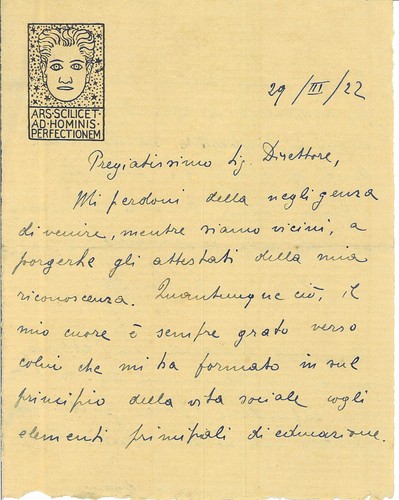 ARS·SCILICET·
AD·HOMINIS·
PERFECTIONEM
29/III/22
Pregiatissimo Sig. Direttore,
Mi perdoni della negligenza
di venire, mentre siamo vicini, a
porgerLe gli attestati della mia
riconoscenza. Quantunque ciò, il
mio cuore è sempre grato verso
colui che mi ha formato in sul
principio della vita sociale cogli
elementi principali di educazione.